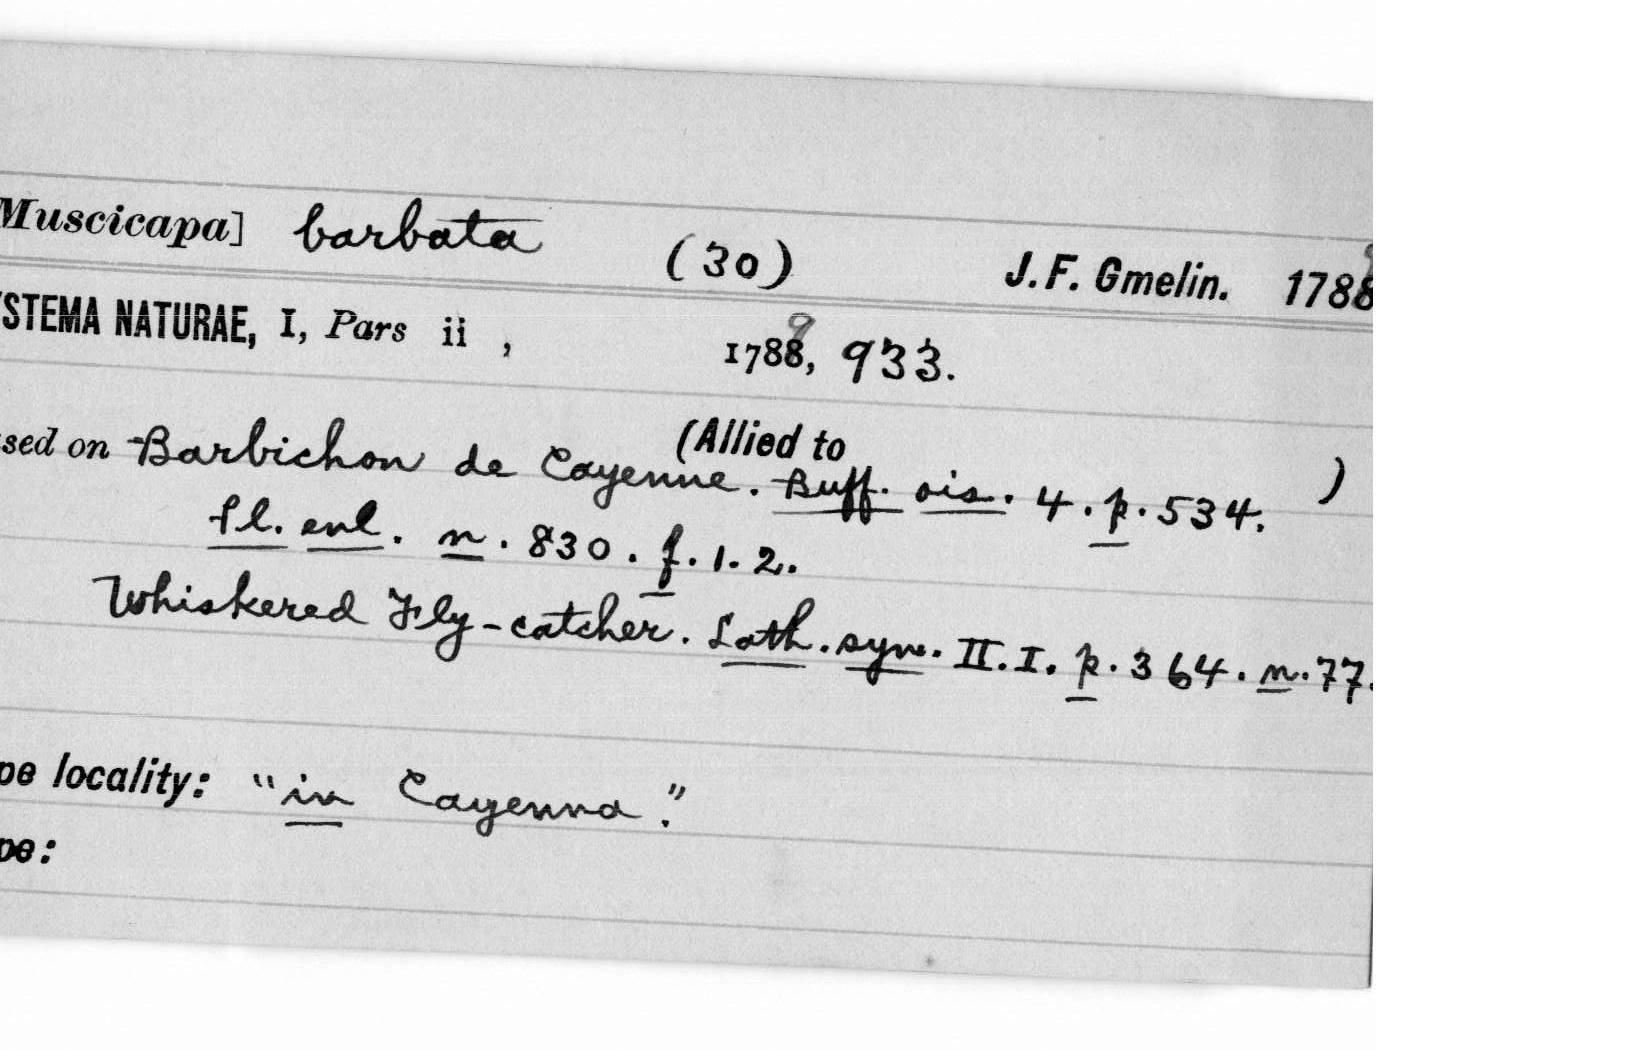 Muscicapa] barbata (30) J. F. Gmelin. 1788
YSTEMA NATURAE, I, Pars ii , 1788, 9 933.
sed on Barbichon de Cayenne. (Allied to ) Buff. ois. 4. p. 534.
pl. enl. n. 830. f. 1. 2.
Whiskered Fly-catcher. Lath. syn. II. I. p. 364. n. 77.
pe locality: "in Cayenna."
pe: